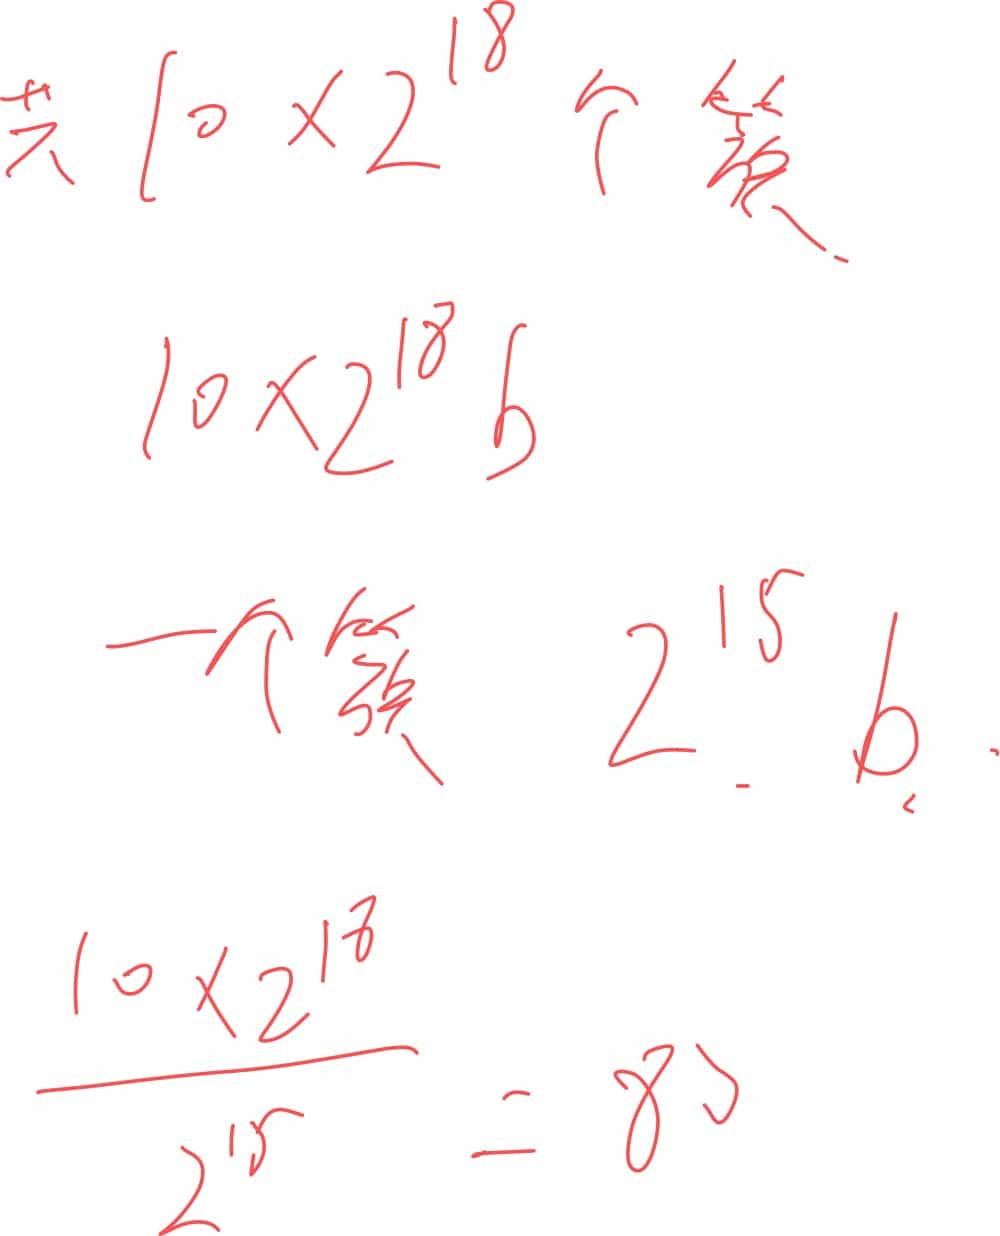 共10×2^18个簇
10×2^18 b
一个簇 2^15 b.
10×2^18
/ 2^15 = 80